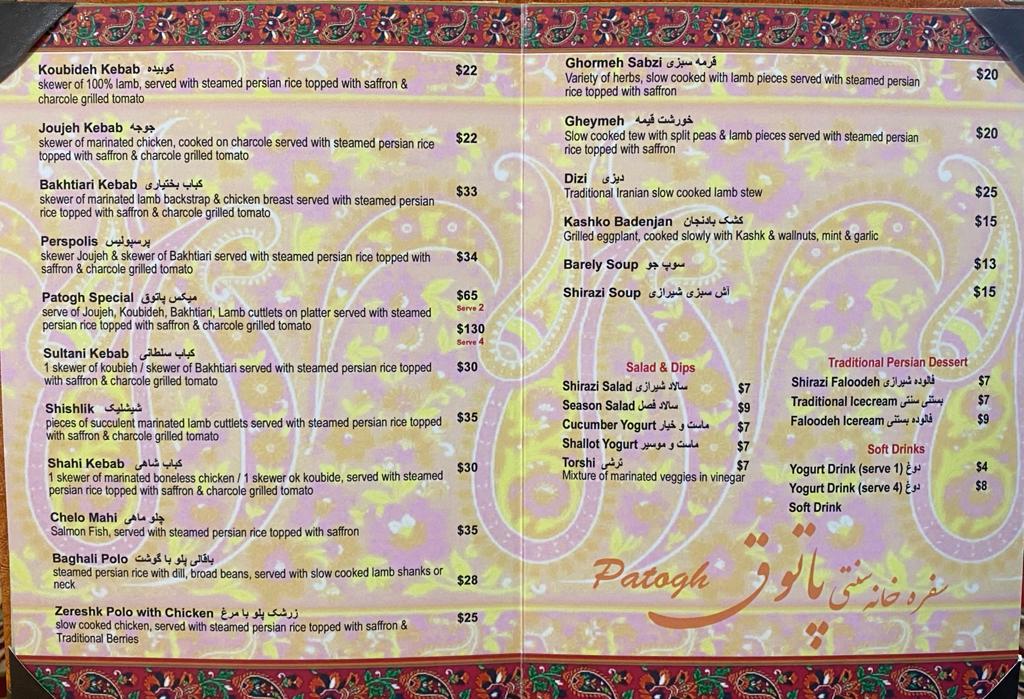 Koubideh Kebab کوبیده
skewer of 100% lamb, served with steamed persian rice topped with saffron & $22
charcole grilled tomato
Joujeh Kebab جوجه
skewer of marinated chicken, cooked on charcole served with steamed persian rice $22
topped with saffron & charcole grilled tomato
Bakhtiari Kebab کباب بختیاری
skewer of marinated lamb backstrap & chicken breast served with steamed persian $33
rice topped with saffron & charcole grilled tomato
Perspolis پرسپولیس
skewer Joujeh & skewer of Bakhtiari served with steamed persian rice topped with $34
saffron & charcole grilled tomato
Patogh Special میکس پاتوق $65
serve of Joujeh, Koubideh, Bakhtiari, Lamb cuttlets on platter served with steamed Serve 2
persian rice topped with saffron & charcole grilled tomato $130
Serve 4
Sultani Kebab کباب سلطانی
1 skewer of koubieh / skewer of Bakhtiari served with steamed persian rice topped $30
with saffron & charcole grilled tomato
Shishlik شیشلیک
pieces of succulent marinated lamb cuttlets served with steamed persian rice topped $35
with saffron & charcole grilled tomato
Shahi Kebab کباب شاهی
1 skewer of marinated boneless chicken / 1 skewer ok koubide, served with steamed $30
persian rice topped with saffron & charcole grilled tomato
Chelo Mahi چلو ماهی
Salmon Fish, served with steamed persian rice topped with saffron $35
Baghali Polo باقالی پلو با گوشت
steamed persian rice with dill, broad beans, served with slow cooked lamb shanks or $28
neck
Zereshk Polo with Chicken زرشک پلو با مرغ
slow cooked chicken, served with steamed persian rice topped with saffron & $25
Traditional Berries
Ghormeh Sabzi قرمه سبزی
Variety of herbs, slow cooked with lamb pieces served with steamed persian $20
rice topped with saffron
Gheymeh خورشت قیمه
Slow cooked tew with split peas & lamb pieces served with steamed persian $20
rice topped with saffron
Dizi دیزی
Traditional Iranian slow cooked lamb stew $25
Kashko Badenjan کشک بادنجان $15
Grilled eggplant, cooked slowly with Kashk & wallnuts, mint & garlic
Barely Soup سوپ جو $13
Shirazi Soup آش سبزی شیرازی $15
Salad & Dips
Shirazi Salad سالاد شیرازی $7
Season Salad سالاد فصل $9
Cucumber Yogurt ماست و خیار $7
Shallot Yogurt ماست و موسیر $7
Torshi ترشی $7
Mixture of marinated veggies in vinegar
Traditional Persian Dessert
Shirazi Faloodeh فالوده شیرازی $7
Traditional Icecream بستنی سنتی $7
Faloodeh Iceream فالوده بستنی $9
Soft Drinks
Yogurt Drink (serve 1) دوغ $4
Yogurt Drink (serve 4) دوغ $8
Soft Drink
Patogh سفره خانه سنتی پاتوق